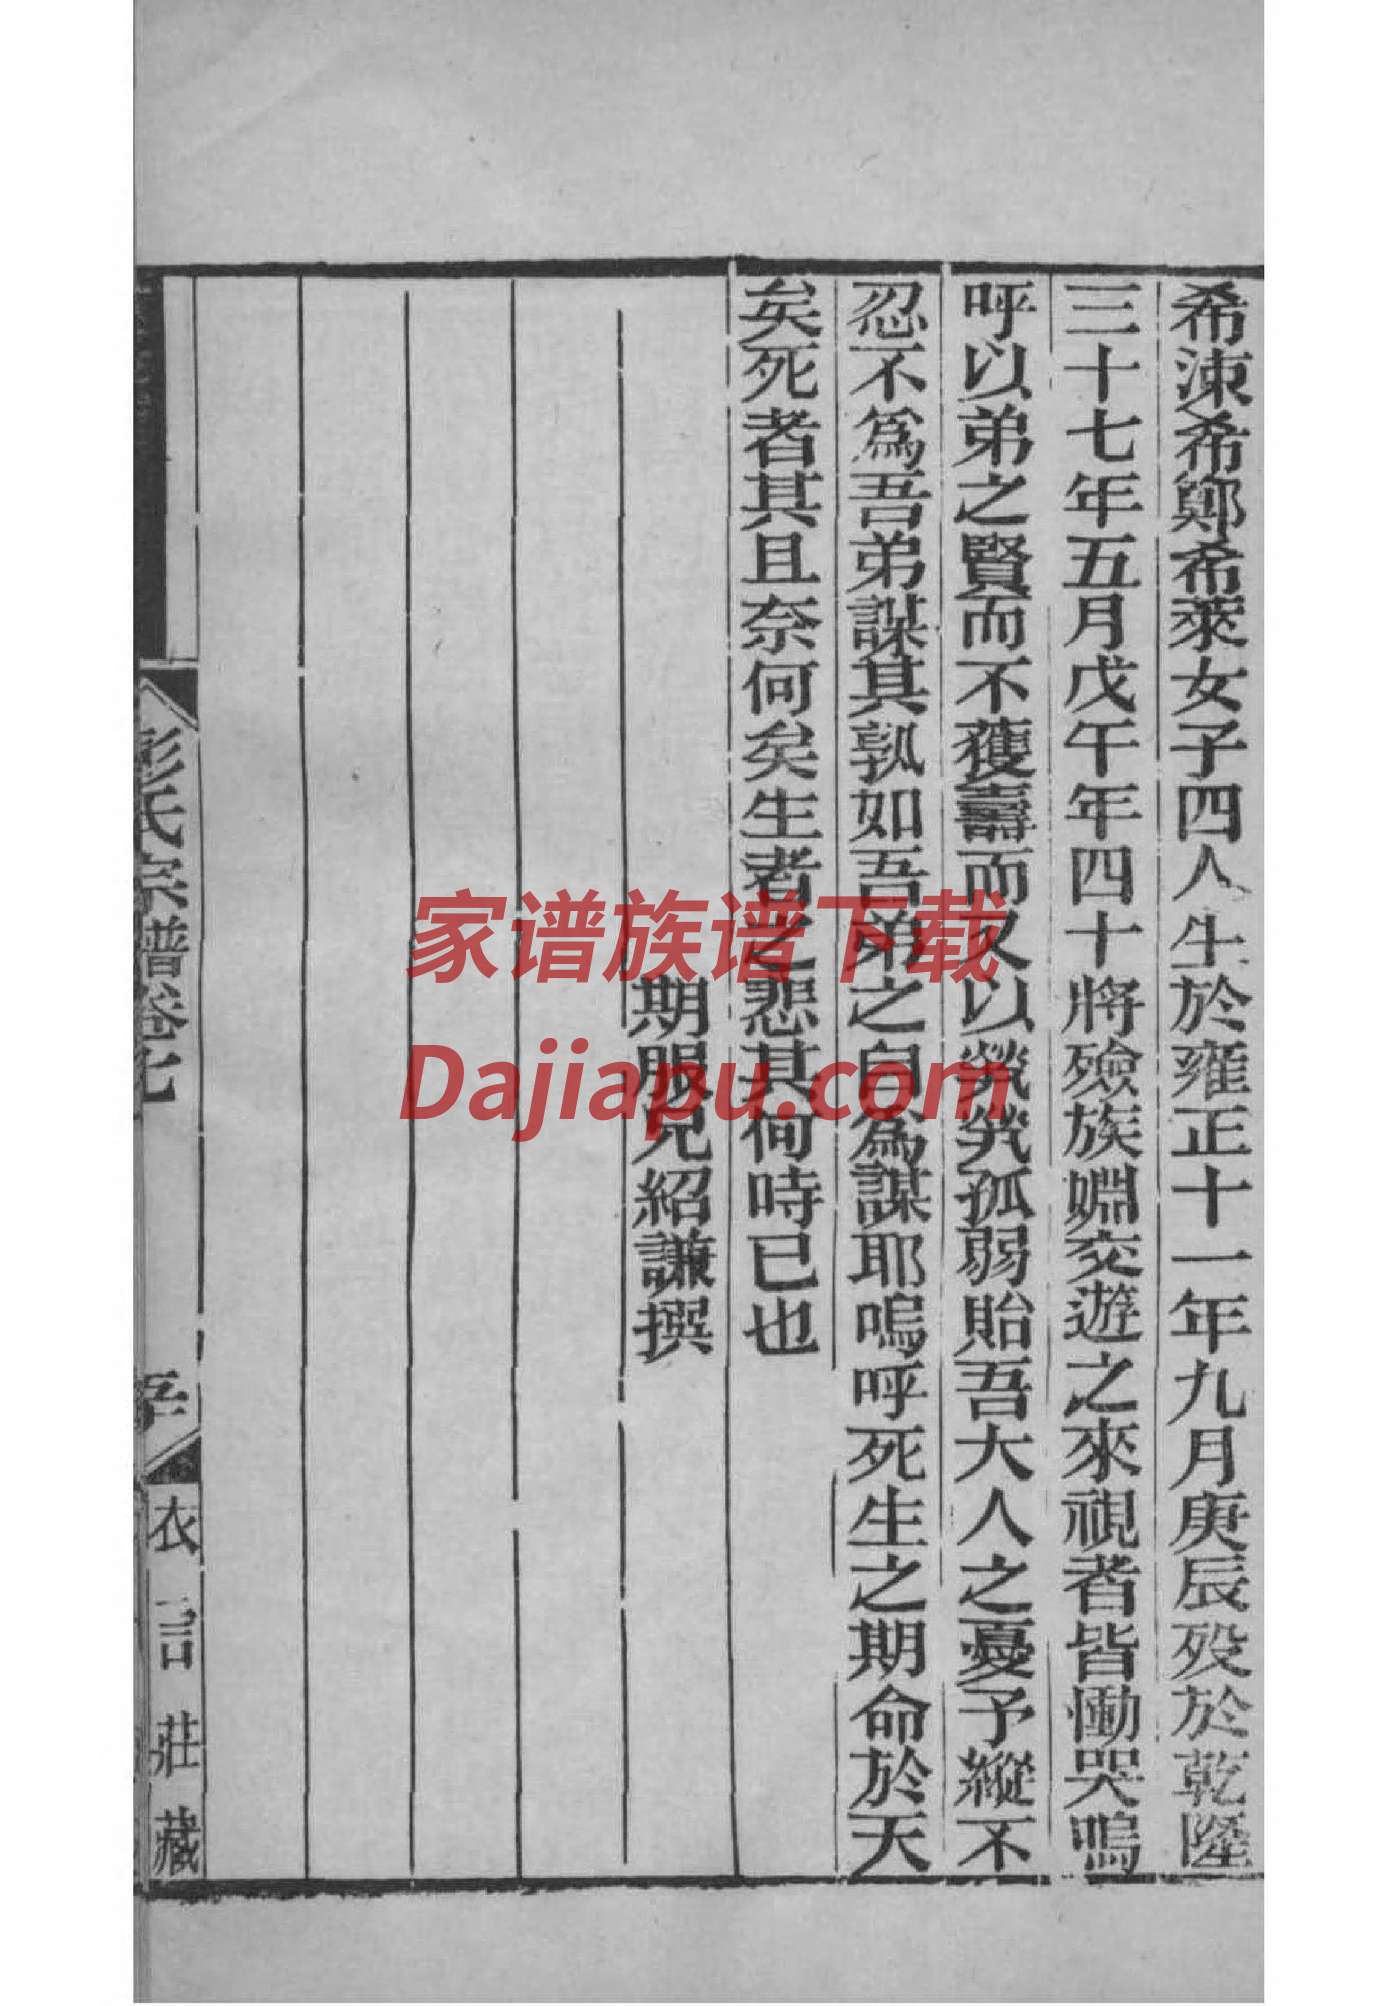 希涑希鄭希萊女子四人生於雍正十一年九月庚辰殁於乾隆
三十七年五月戊午年四十將殮族婣交遊之來視者皆慟哭嗚
呼以弟之賢而不獲壽而又以煢煢孤弱貽吾大人之憂予縱不
忍不爲吾弟謀其孰如吾弟之自爲謀耶嗚呼死生之期命於天
矣死者其且奈何矣生者之悲其何時已也
期服兄紹謙撰
彭氏宗譜卷七
衣言莊藏
家谱族谱下载
Dajiapu.com